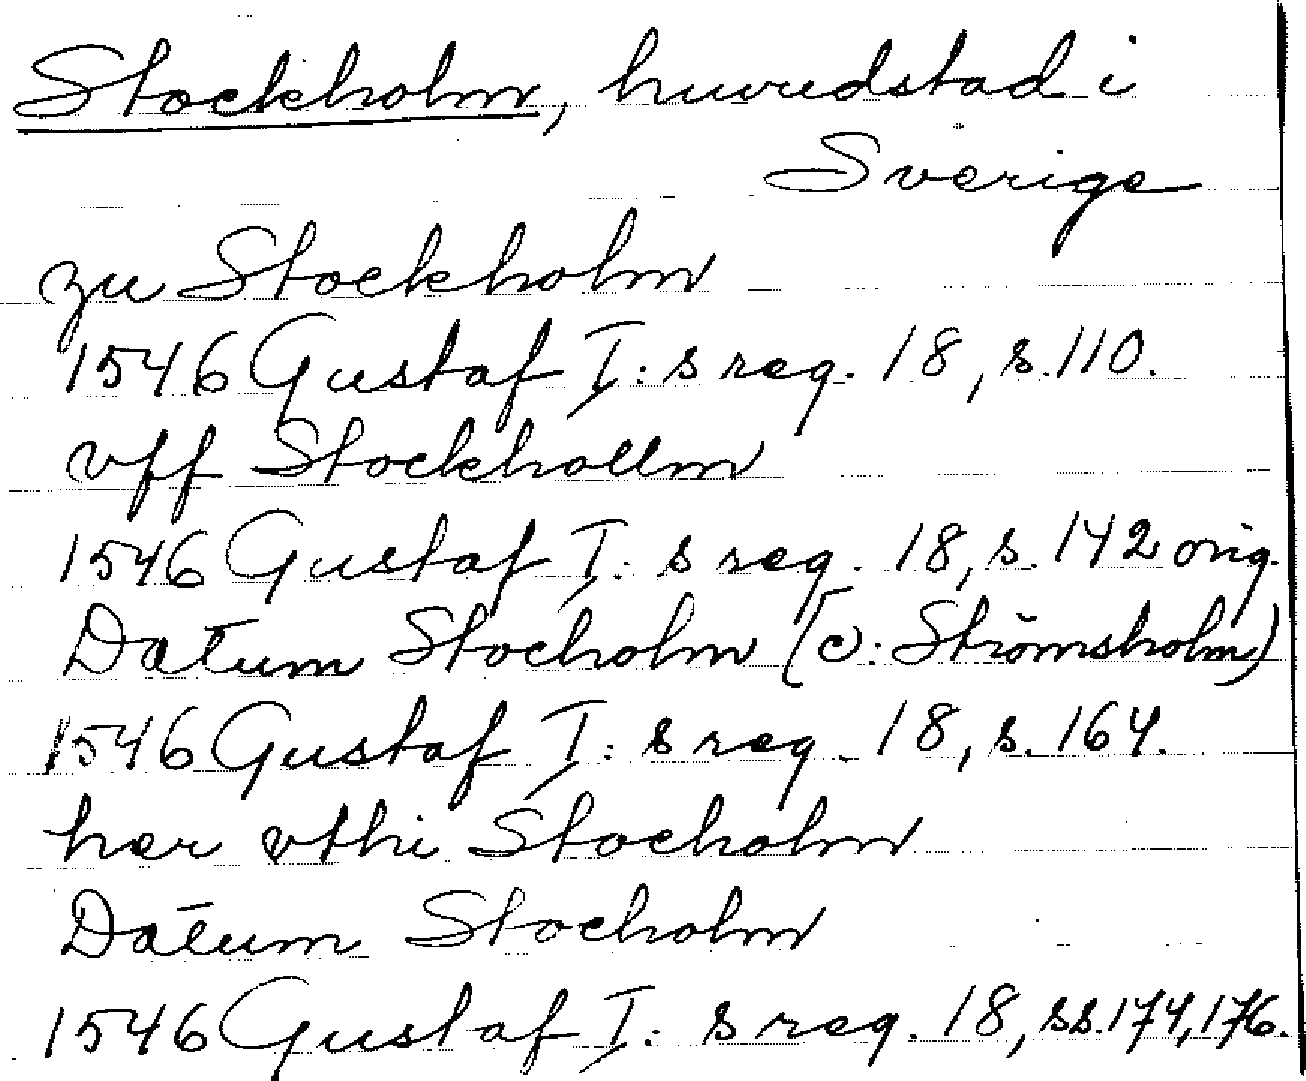 Stockholm, huvudstad i
Sverige
zu Stockholm
1546 Gustaf I:s reg. 18, s. 110.
vff Stockhollm
1546 Gustaf I:s reg. 18, s. 142 orig.
Datum Stocholm (ɔ: Strömsholm)
1546 Gustaf I:s reg. 18, s. 164.
her vthi Stocholm
Datum Stocholm
1546 Gustaf I:s reg. 18, ss. 174, 176.